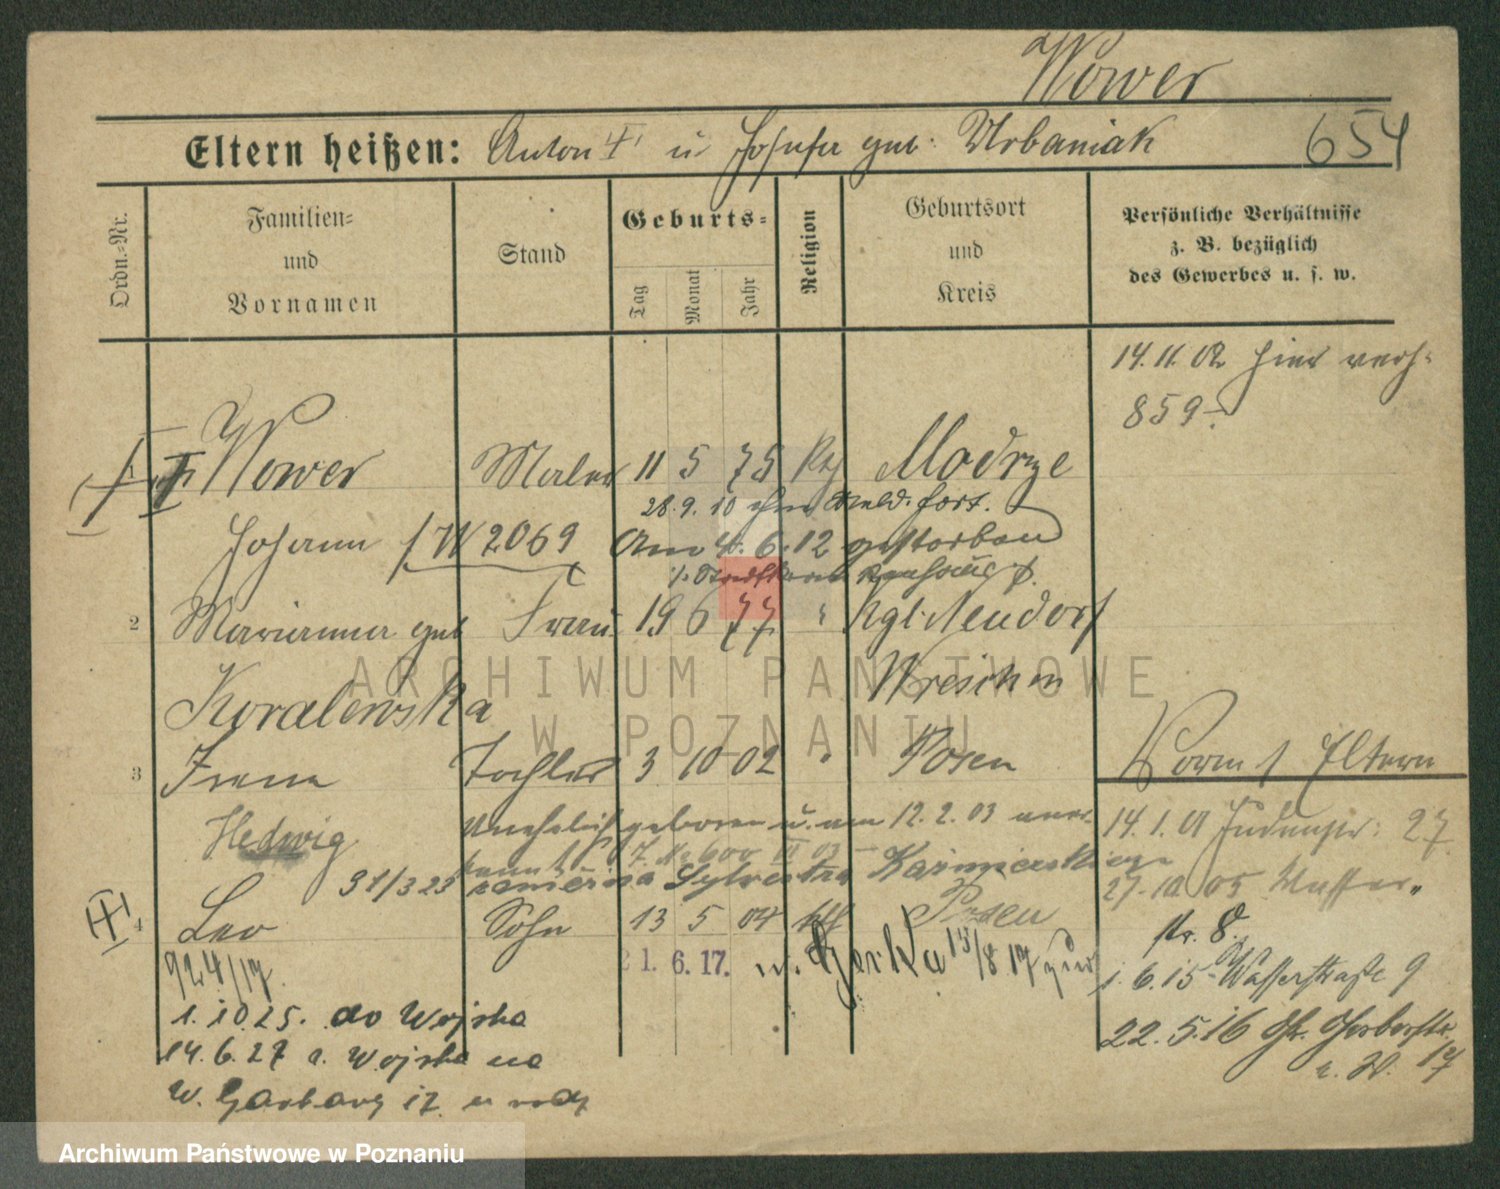 Wower
Eltern heißen: Anton u Josefa geb: Urbaniak 654
Ordn.-Nr.
Familien-
und
Vornamen
Stand
Geburts-
Tag
Monat
Jahr
Religion
Geburtsort
und
Kreis
Persönliche Verhältnisse
z. B. bezüglich
des Gewerbes u. s. w.
14.11.02 hier verh.
859
Wower Maler 11 5 75 Kth Modrze
28.9.10 ohne Meld. fort.
Johann W 2069 Am 4.6.12 gestorben
2 Marianna geb Frau 19 6 77 " Kgl. Neudorf
Kovalewska Wreschen
3 Irena Tochter 3 10 02 " Posen Vorm. Eltern
Hedwig Unehelich geboren u. am 12.2.03 aner-
kannt 17. No 600 VI 03
14.1.01 Judenstr: 27
31/3 23 Sylvestra Kazmierski
27.10.05 Wasser-
str. 8.
4 Leo Sohn 13 5 04 kth Posen
924/17. 21. 6. 17. w. Gorka 13/8 17 zur
1.6.15 Wasserstraße 9
1.10.25. do Wojska
22.5.16 Gr. Gerberstr.
14.6.27 z. Wojska na
17
W. Garbary 17
ARCHIWUM PAŃSTWOWE
W POZNANIU
Archiwum Państwowe w Poznaniu